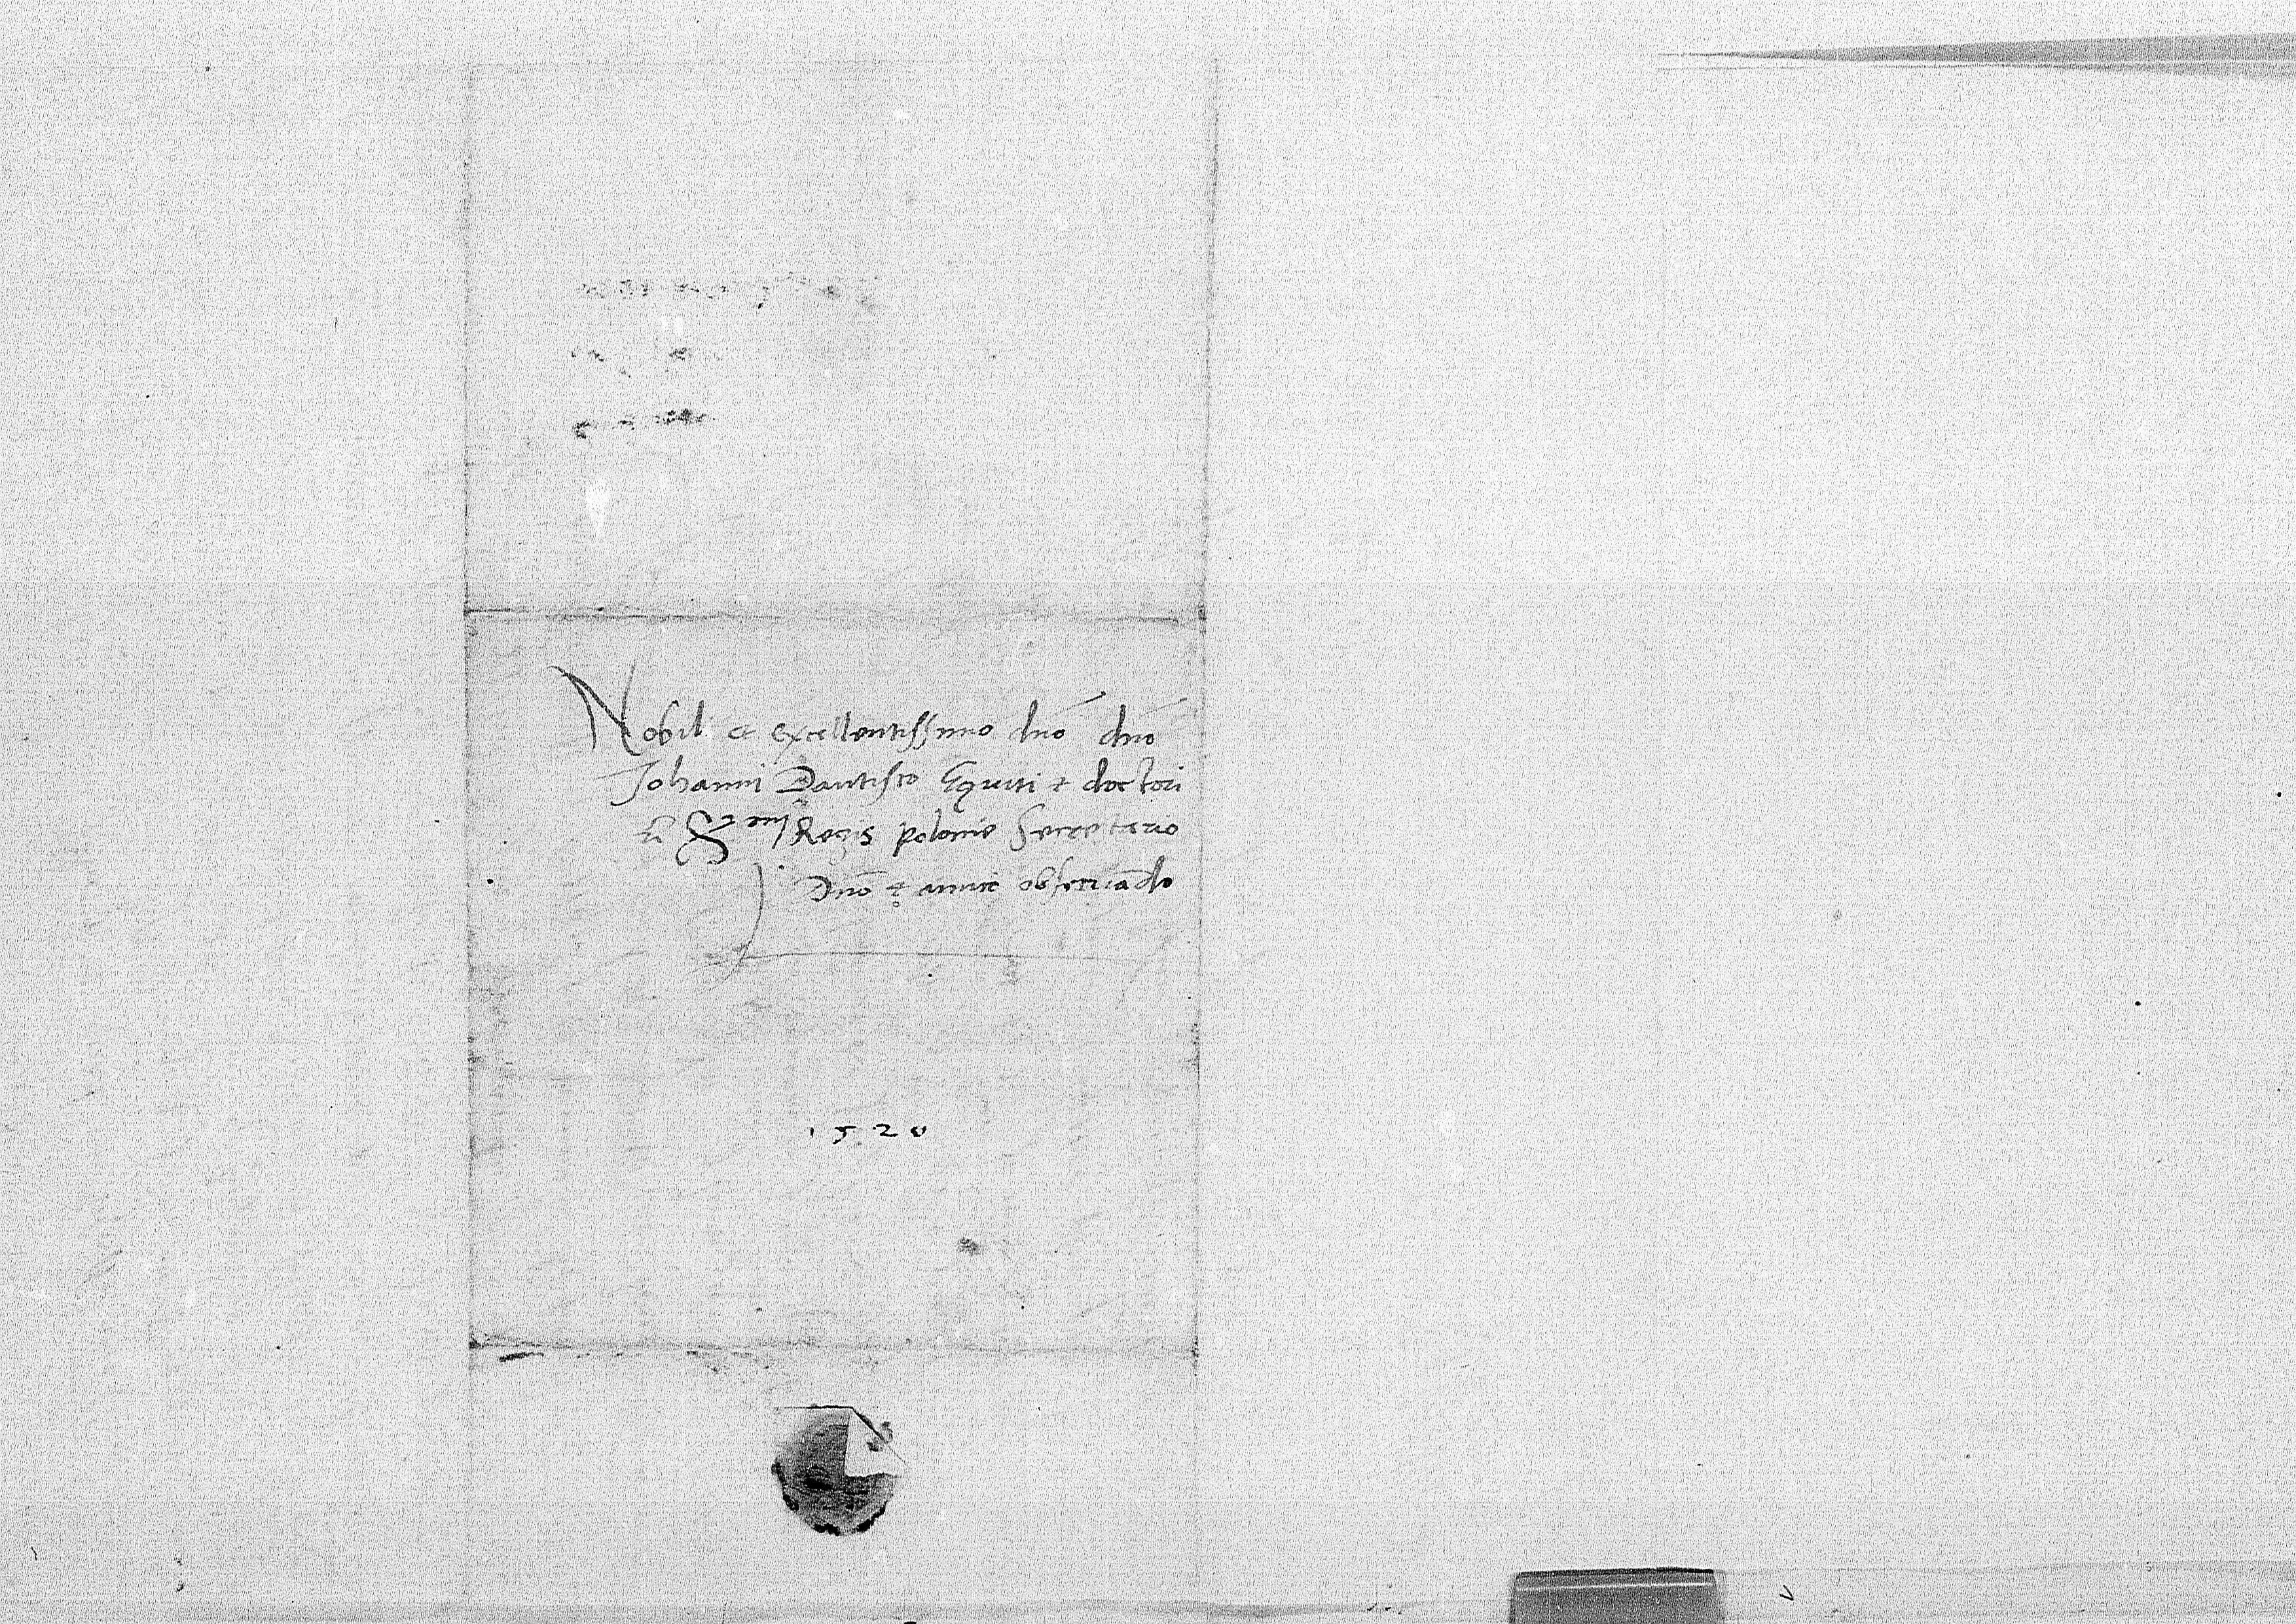 Nobili et excellentissimo dno dno
Johanni Dantisco Equiti et doctori
Regis polonie Secretario
Dno et amico observando
1520